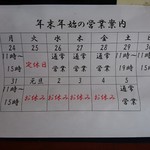 年末年始の営業案内
月 火 水 木 金 土 日
24 25 26 27 28 29 30
11時 定休日 通常 通常 通常 11時 11時
15時 営業 営業 営業 15時 15時
31 元旦 2 3 4 5
11時 お休み お休み お休み お休み 通常
15時 営業